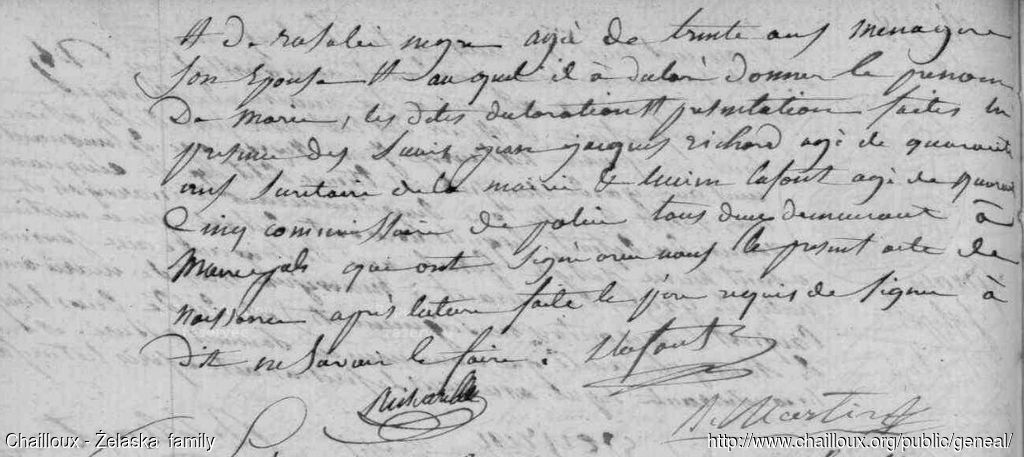 et de rosalie negre agé de trente ans menagere
son Epouse et au quel il à declaré donner le prenom
De marie, les dites declaration et presentation faites en
presence des Sieurs jean jacques richard agé de quarante
ans Secretaire de la mairie & lafont agé de quarante
Cinq commissaire de police tous deux demeurant à
Marvejols que ont signé avec nous le present acte de
naissance après lecture faite le père requis de signer à
dit ne savoir le faire.
Lafont
Richard
Martin
Chailloux - Żelaska family
http://www.chailloux.org/public/geneal/